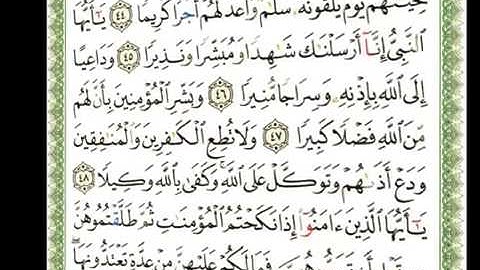 تَحِيَّتُهُمْ يَوْمَ يَلْقَوْنَهُۥ سَلَٰمٌ وَأَعَدَّ لَهُمْ أَجْرًا كَرِيمًا ٤٤ يَٰٓأَيُّهَا
ٱلنَّبِىُّ إِنَّآ أَرْسَلْنَٰكَ شَٰهِدًا وَمُبَشِّرًا وَنَذِيرًا ٤٥ وَدَاعِيًا
إِلَى ٱللَّهِ بِإِذْنِهِۦ وَسِرَاجًا مُّنِيرًا ٤٦ وَبَشِّرِ ٱلْمُؤْمِنِينَ بِأَنَّ لَهُم
مِّنَ ٱللَّهِ فَضْلًا كَبِيرًا ٤٧ وَلَا تُطِعِ ٱلْكَٰفِرِينَ وَٱلْمُنَٰفِقِينَ
وَدَعْ أَذَىٰهُمْ وَتَوَكَّلْ عَلَى ٱللَّهِ وَكَفَىٰ بِٱللَّهِ وَكِيلًا ٤٨
يَٰٓأَيُّهَا ٱلَّذِينَ ءَامَنُوٓا۟ إِذَا نَكَحْتُمُ ٱلْمُؤْمِنَٰتِ ثُمَّ طَلَّقْتُمُوهُنَّ
فَمَا لَكُمْ عَلَيْهِنَّ مِنْ عِدَّةٍ تَعْتَدُّونَهَا